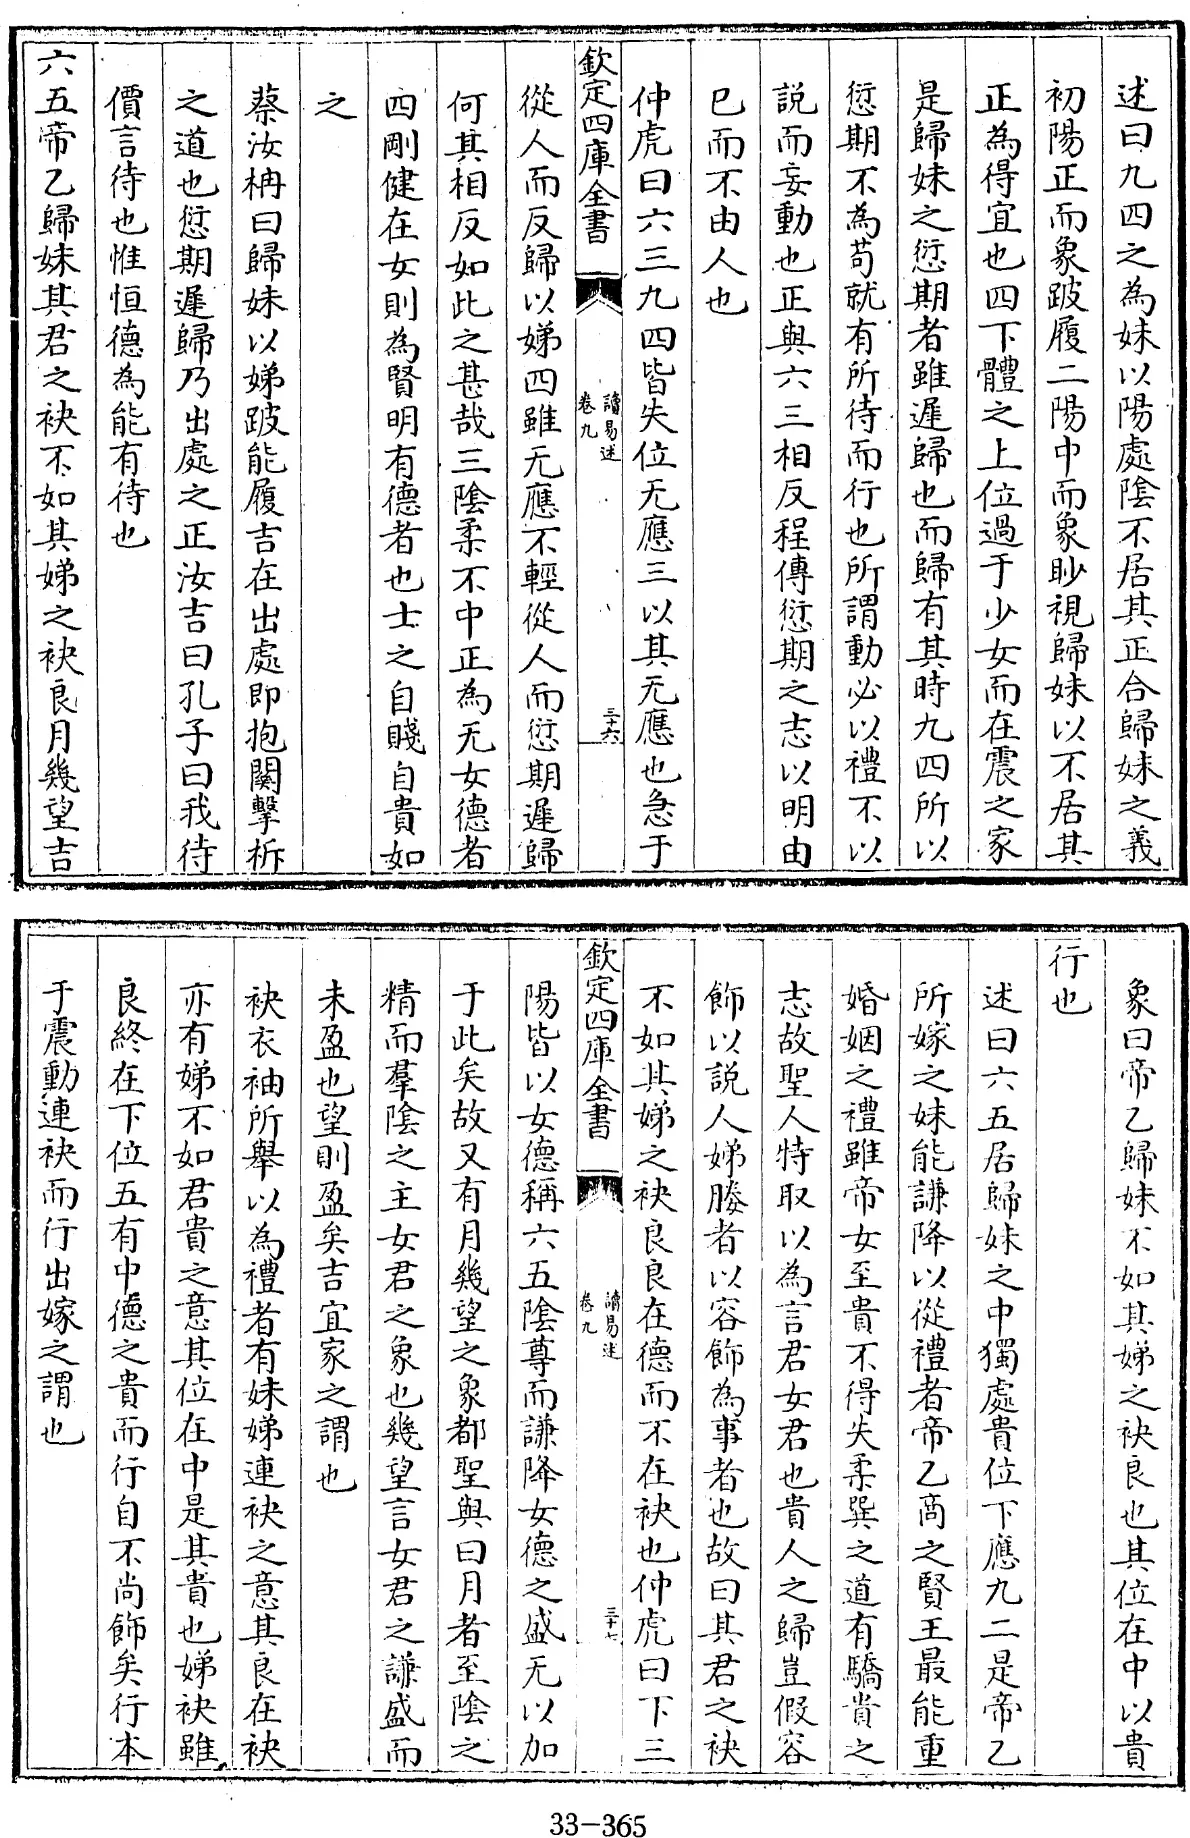 述曰九四之為妹以陽處陰不居其正合歸妹之義
初陽正而象跛履二陽中而象眇視歸妹以不居其
正為得宜也四下體之上位過于少女而在震之家
是歸妹之愆期者雖遲歸也而歸有其時九四所以
愆期不為苟就有所待而行也所謂動必以禮不以
説而妄動也正與六三相反程傳愆期之志以明由
已而不由人也
仲虎曰六三九四皆失位无應三以其无應也急于
欽定四庫全書
讀易述
卷九
三十六
從人而反歸以娣四雖无應不輕從人而愆期遲歸
何其相反如此之甚哉三陰柔不中正為无女德者
四剛健在女則為賢明有德者也士之自賤自貴如
之
蔡汝柟曰歸妹以娣跛能履吉在出處即抱關擊柝
之道也愆期遲歸乃出處之正汝吉曰孔子曰我待
價言待也惟恒德為能有待也
六五帝乙歸妹其君之袂不如其娣之袂良月幾望吉
象曰帝乙歸妹不如其娣之袂良也其位在中以貴
行也
述曰六五居歸妹之中獨處貴位下應九二是帝乙
所嫁之妹能謙降以從禮者帝乙商之賢王最能重
婚姻之禮雖帝女至貴不得失柔巽之道有驕貴之
志故聖人特取以為言君女君也貴人之歸豈假容
飾以説人娣媵者以容飾為事者也故曰其君之袂
不如其娣之袂良良在德而不在袂也仲虎曰下三
欽定四庫全書
讀易述
卷九
三十七
陽皆以女德稱六五陰尊而謙降女德之盛无以加
于此矣故又有月幾望之象都聖與曰月者至陰之
精而羣陰之主女君之象也幾望言女君之謙盛而
未盈也望則盈矣吉宜家之謂也
袂衣袖所舉以為禮者有妹娣連袂之意其良在袂
亦有娣不如君貴之意其位在中是其貴也娣袂雖
良終在下位五有中德之貴而行自不尚飾矣行本
于震動連袂而行出嫁之謂也
33-365